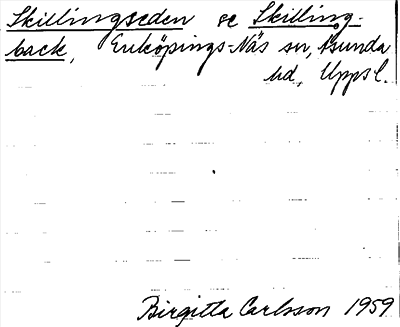 Skillingseden se Skilling-
back, Enköpings-Näs sn, Åsunda
hd, Uppsl.
Birgitta Carlsson 1959